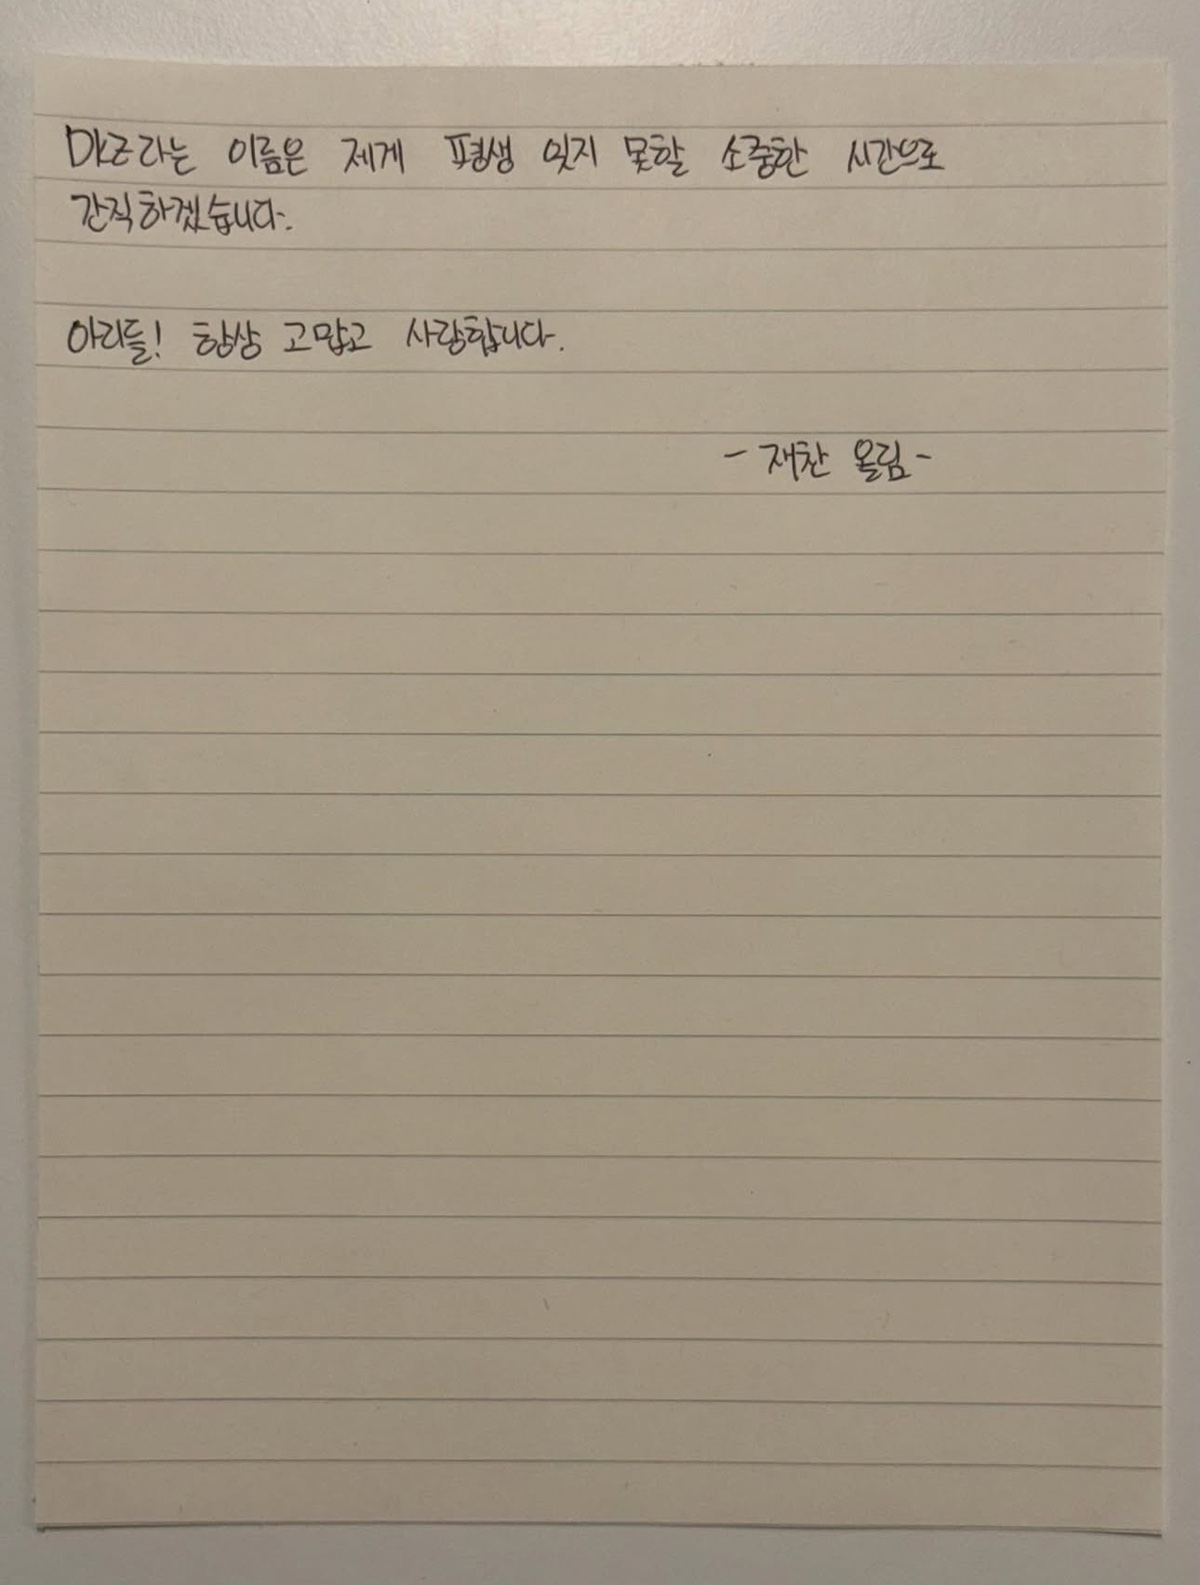 DKZ라는 이름은 제게 평생 잊지 못할 소중한 시간으로
간직하겠습니다.
아리들! 항상 고맙고 사랑합니다.
- 재찬 올림 -